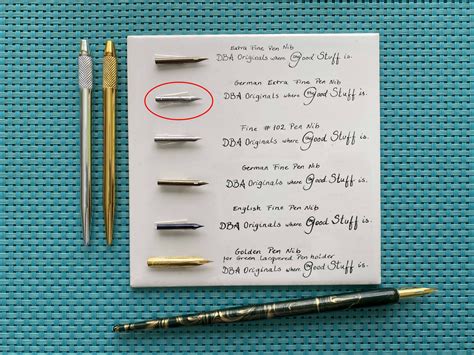 Extra Fine Pen Nib
DBA Originals where the Good Stuff is.
German Extra Fine Pen Nib
DBA Originals where the Good Stuff is.
Fine #102 Pen Nib
DBA Originals where the Good Stuff is.
German Fine Pen Nib
DBA Originals where the Good Stuff is.
English Fine Pen Nib
DBA Originals where the Good Stuff is.
Golden Pen Nib
for Green Lacquered Pen holder
DBA Originals where the Good Stuff is.